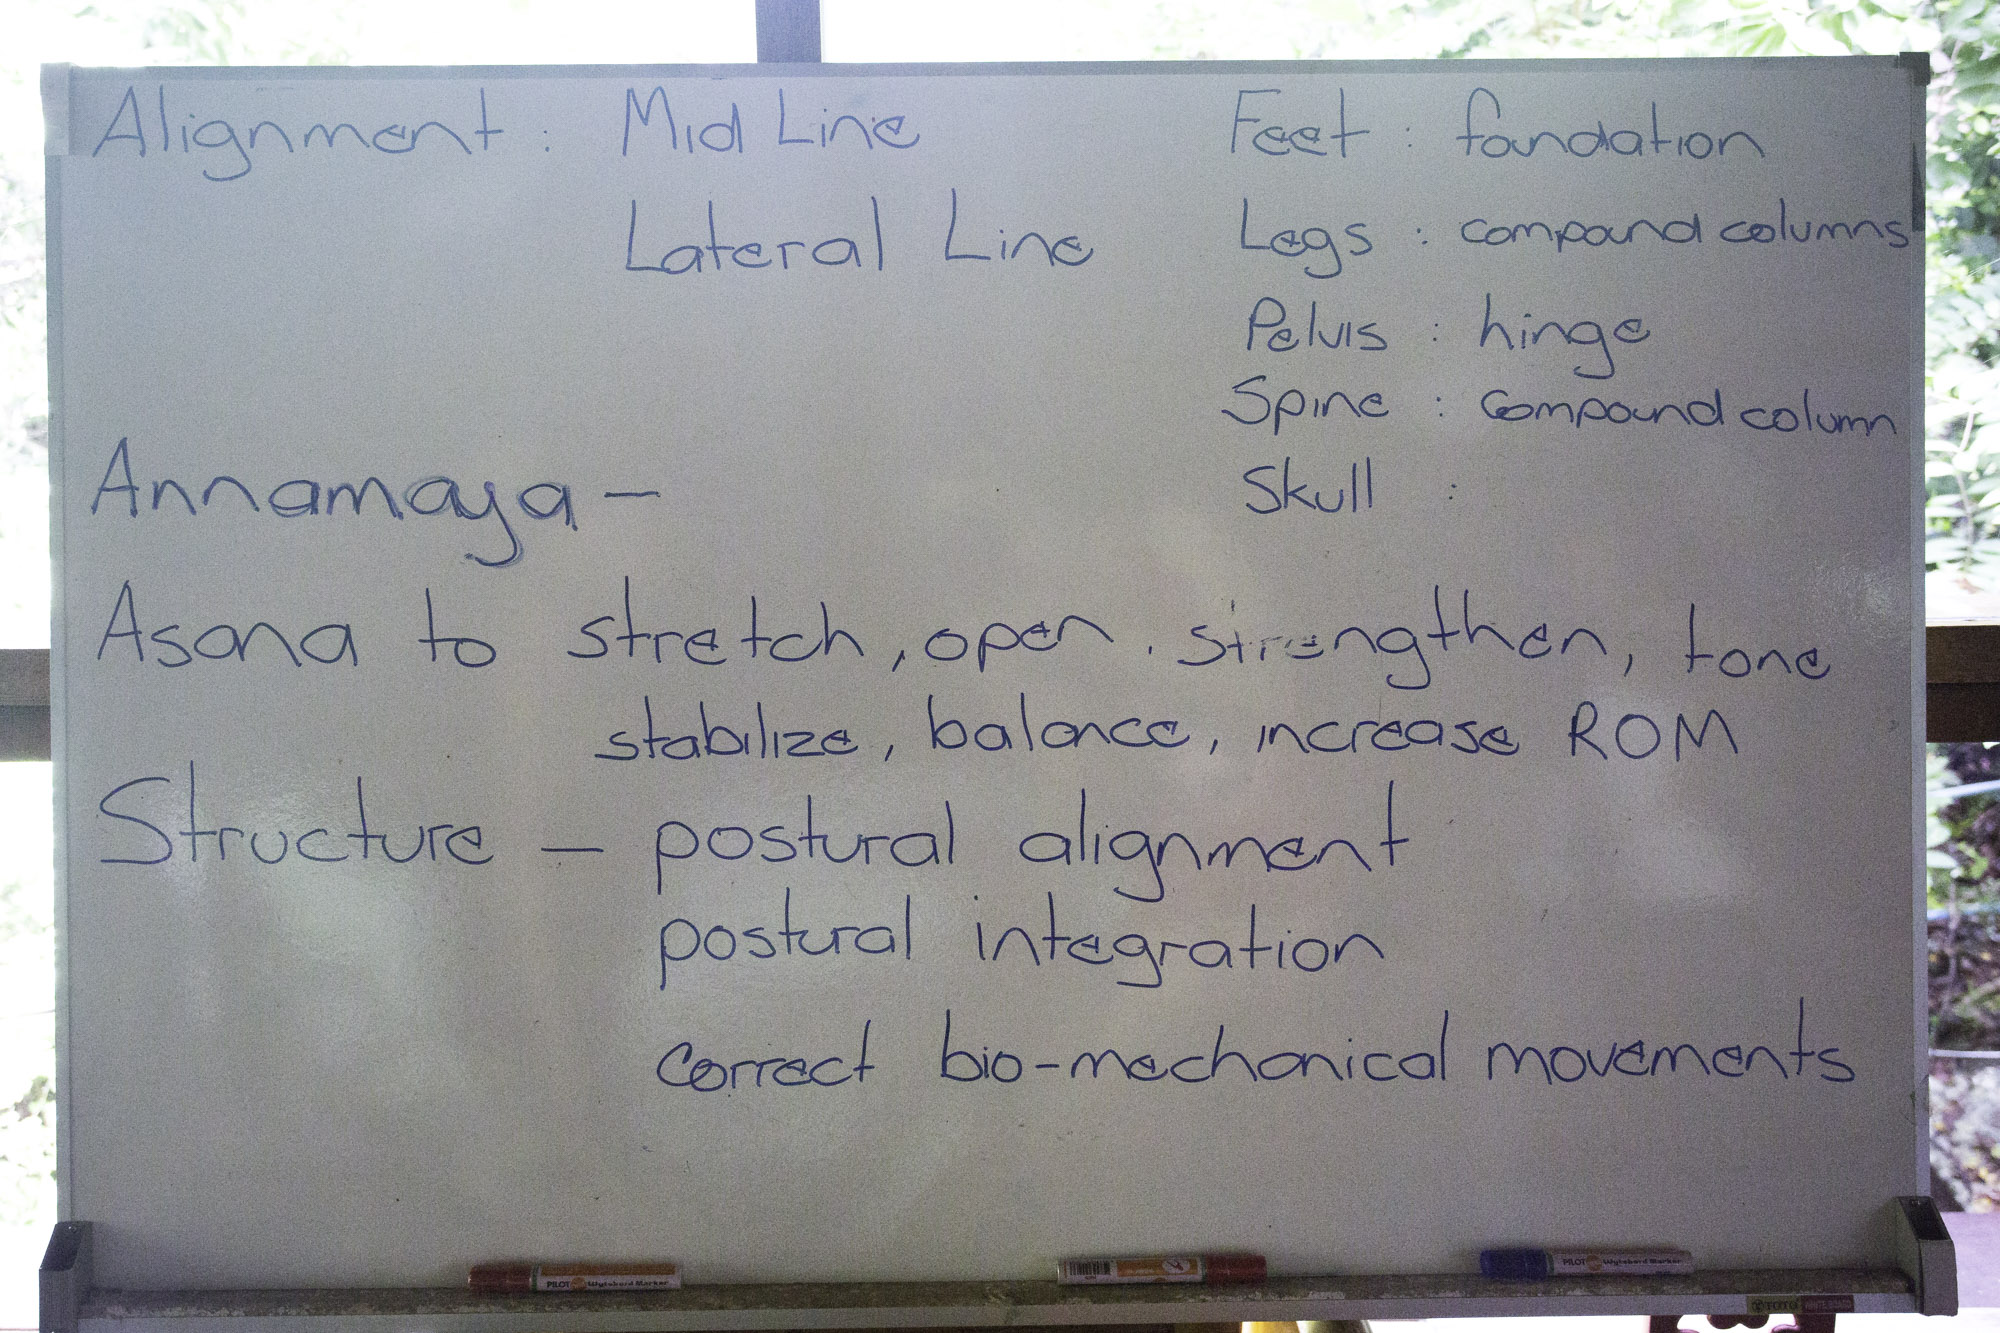 Alignment : Mid Line
Lateral Line
Feet : foundation
Legs : compound columns
Pelvis : hinge
Spine : compound column
Skull :
Annamaya –
Asana to stretch, open, strengthen, tone
stabilize, balance, increase ROM
Structure – postural alignment
postural integration
correct bio-mechanical movements
PILOT Wyteboard Marker
PILOT Wyteboard Marker
TOTO WHITE BOARD